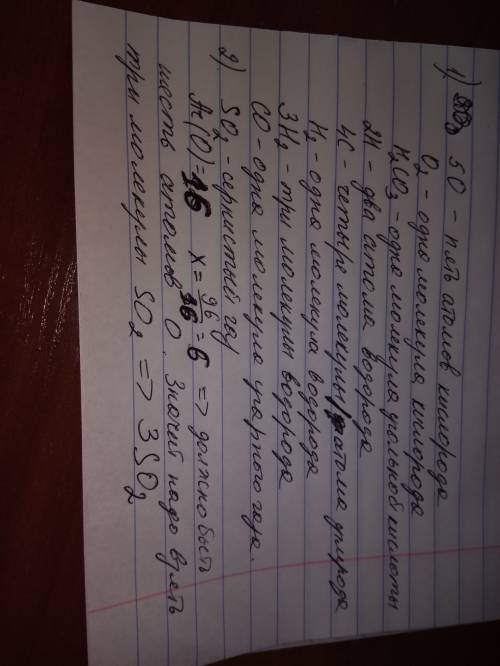 1) 5O - пять атомов кислорода
O₂ - одна молекула кислорода
H₂CO₃ - одна молекула угольной кислоты
2H - два атома водорода
4C - четыре молекулы атома углрода
H₂ - одна молекула водорода
3H₂ - три молекулы водорода
CO - одна молекула угарного газа.
2) SO₂ - сернистый газ
Ar(O)=16 x = 96/16 = 6 => должно быть
шесть атомов O. Значит надо взять
три молекулы SO₂ => 3SO₂